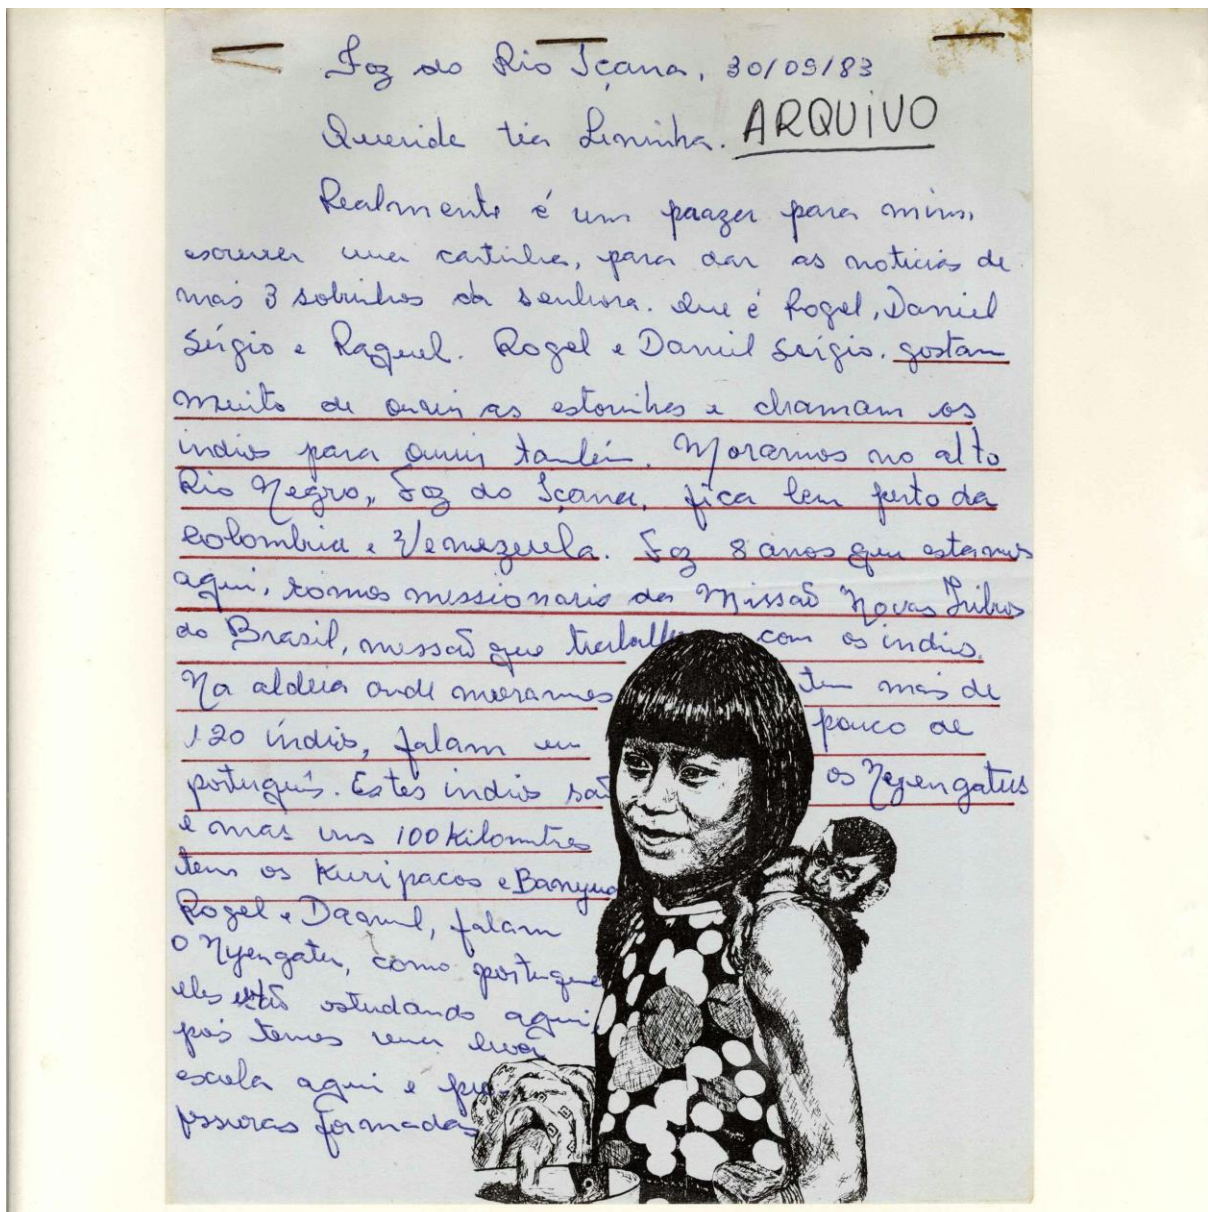 Foz do Rio Içana, 30/09/83
Queride tia Lininha. ARQUIVO
Realmente é um prazer para mim,
escrever uma cartinha, para dar as noticias de
mas 3 sobrinhos da senhora. Que é Rogel, Daniel
Sérgio e Raquel. Rogel e Daniel Sérgio. gostam
muito de ouvir as estorinhas e chamam os
indios para ouvir também. Moramos no alto
Rio Negro, Foz do Içana, fica bem perto da
Colombia e Venezuela. Faz 8 anos que estamos
aqui, somos missionario da Missão Novas Tribos
do Brasil, missão que trabalha com os indios.
Na aldeia onde moramos tem mais de
120 índios, falam um pouco de
português. Estes indios são os Nyengatus
e mas uns 100 Kilomtres
tem os Kuripacos e Banyua
Rogel e Daniel, falam
o Nyengatu, como portugues
eles estão estudando aqui,
pois temos uma boa
escola aqui e pro-
fessoras formadas